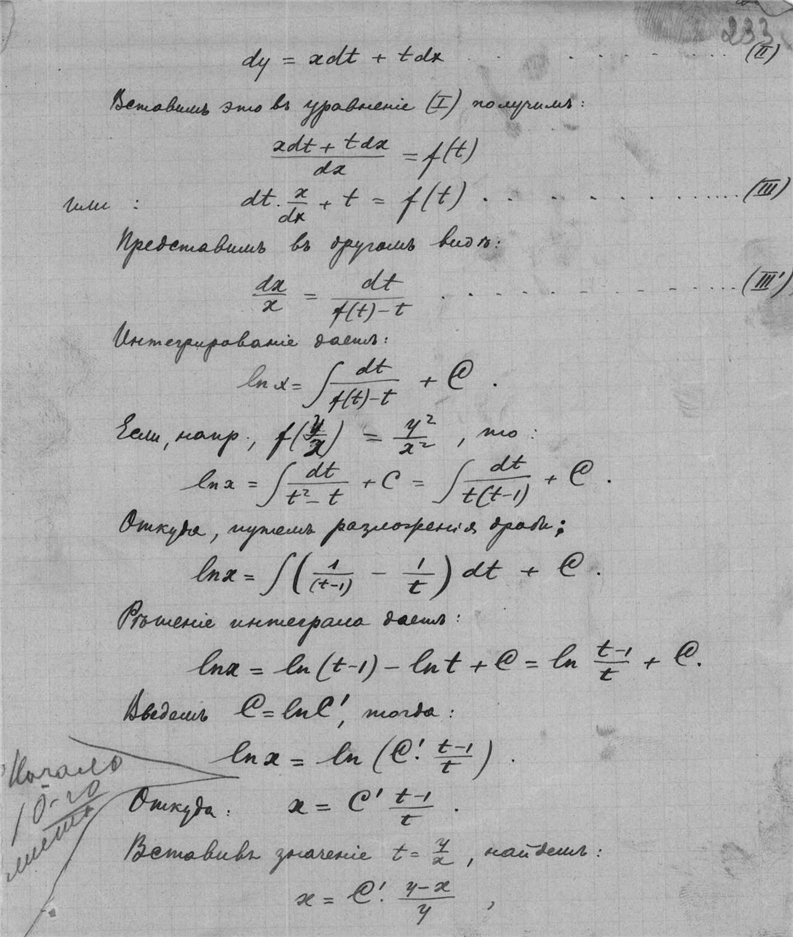 233.
dy = xdt + tdx . . . . . . . . . . (II)
Вставимъ это въ уравненіе (I) получимъ:
(xdt + tdx)/dx = f(t)
или : dt. x/dx + t = f(t) . . . . . . . . . . (III)
Представимъ въ другомъ видѣ:
dx/x = dt/(f(t)-t) . . . . . . . . . . (III')
Интегрированіе даетъ:
ln x = ∫ dt/(f(t)-t) + C .
Если, напр., f(y/x) = y²/x² , то :
ln x = ∫ dt/(t²-t) + C = ∫ dt/(t(t-1)) + C .
Откуда, путемъ разложенія дроби:
ln x = ∫ (1/(t-1) - 1/t) dt + C .
Рѣшеніе интеграла даетъ:
ln x = ln (t-1) - ln t + C = ln (t-1)/t + C.
Введемъ C = ln C', тогда :
ln x = ln (C'. (t-1)/t) .
Начало
10-го
листа
Откуда: x = C' (t-1)/t .
Вставивъ значеніе t = y/x , найдемъ:
x = C'. (y-x)/y ,